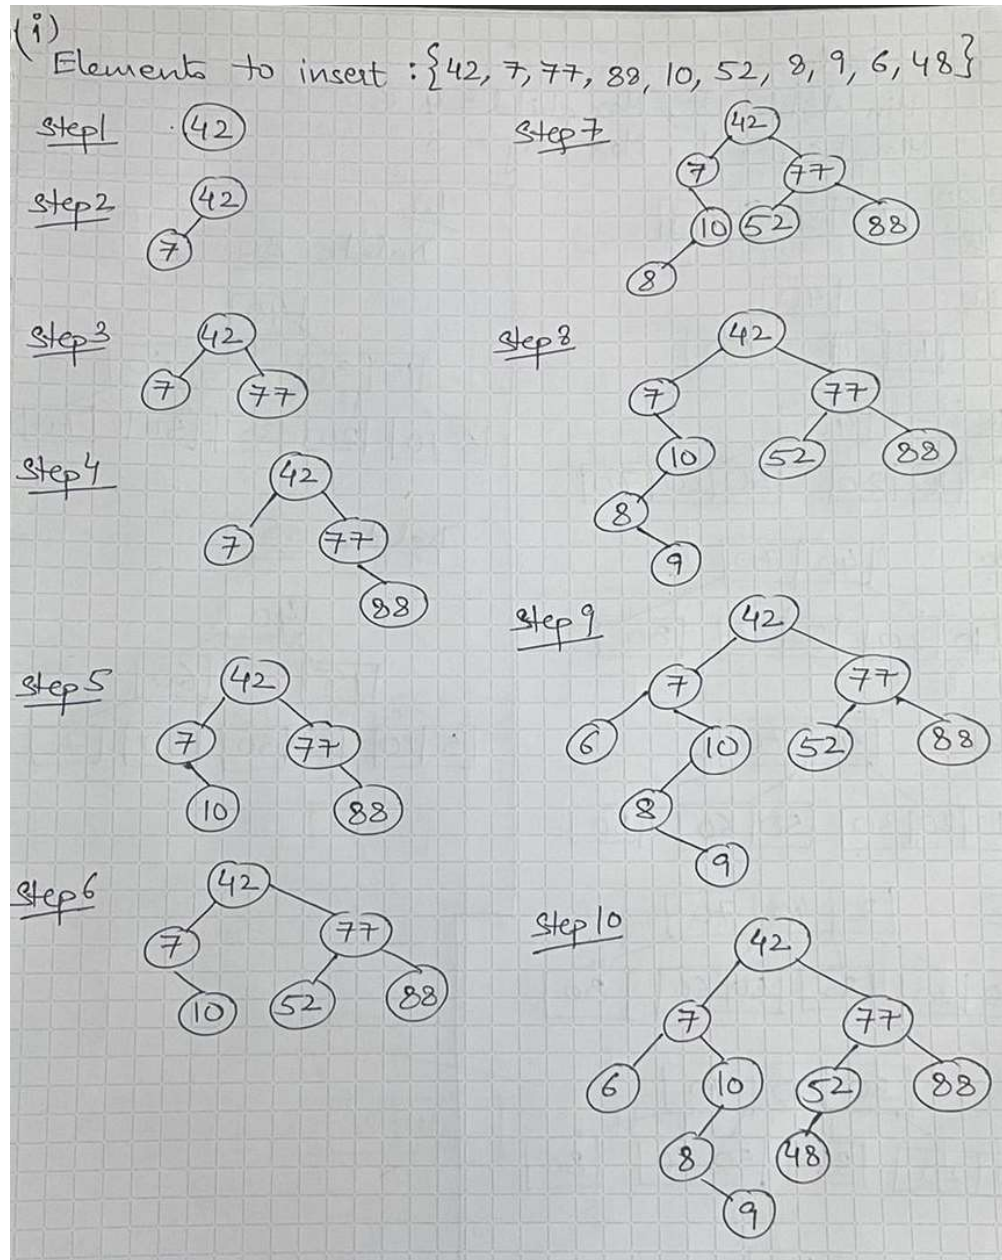 (i)
Elements to insert : {42, 7, 77, 88, 10, 52, 8, 9, 6, 48}
Step1
42
Step2
42
7
Step3
42
7 77
Step4
42
7 77
88
Step5
42
7 77
10 88
Step6
42
7 77
10 52 88
Step7
42
7 77
10 52 88
8
Step8
42
7 77
10 52 88
8
9
Step9
42
7 77
6 10 52 88
8
9
Step10
42
7 77
6 10 52 88
8 48
9